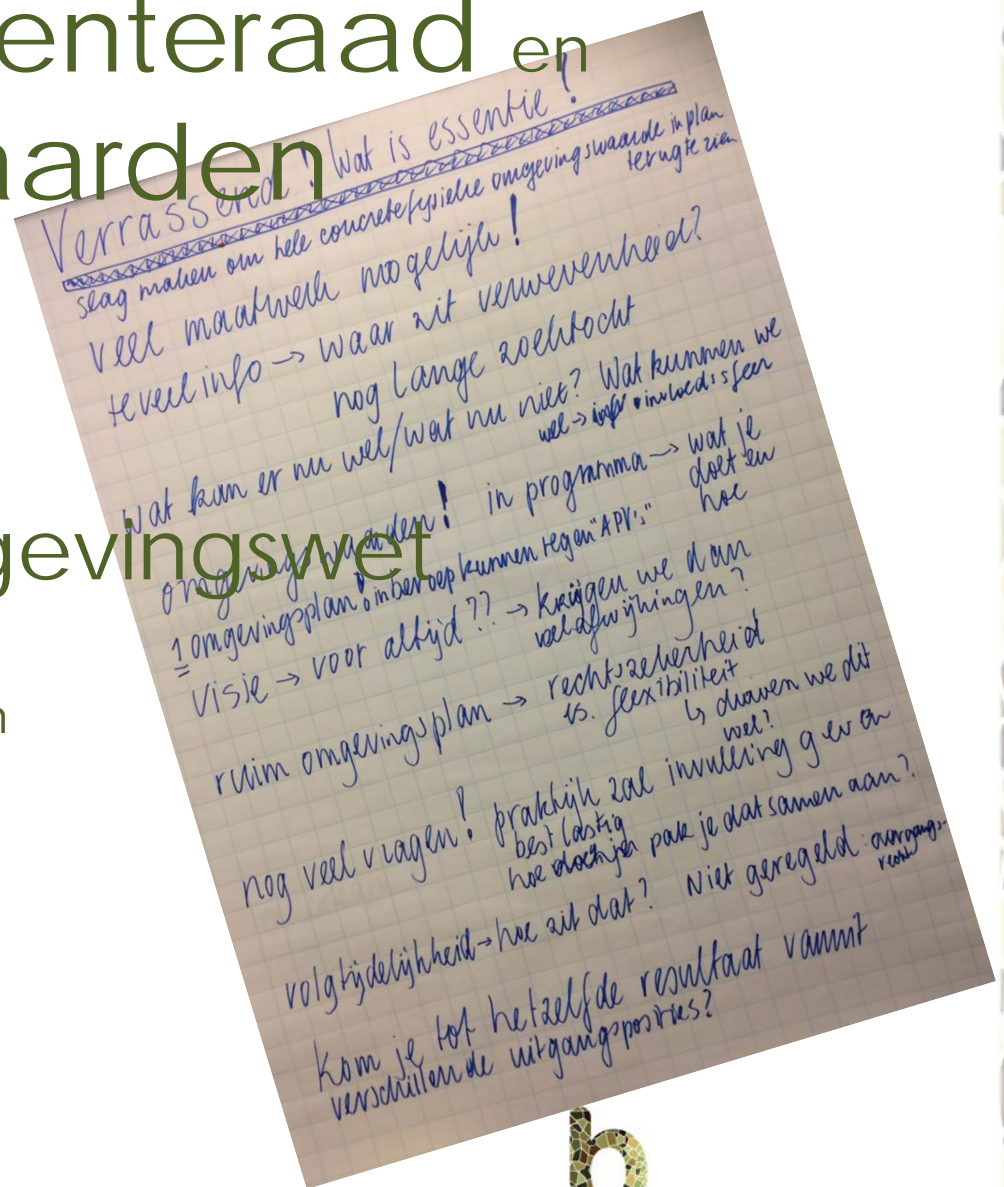 enteraad en
aarden
gevingswet
n
Verrassend? Wat is essentie!
slag maken om hele concrete fysieke omgevingswaarde in plan
terug te zien
veel maatwerk mogelijk!
teveel info → waar zit verwevenheid?
nog lange zoektocht
wat kan er nu wel/wat nu niet? Wat kunnen we
wel → invloedssfeer
omgevingswaarden! in programma → wat je
doet en
hoe
1 omgevingsplan! in beroep kunnen tegen "APV's"
visie → voor altijd?? → krijgen we dan
veel afwijkingen?
ruim omgevingsplan → rechtszekerheid
vs. flexibiliteit
↳ durven we dit
wel?
nog veel vragen! praktijk zal invulling geven
best lastig
hoe pak je dat samen aan?
volgtijdelijkheid → hoe zit dat? Niet geregeld: overgangs-
recht
Kom je tot hetzelfde resultaat vanuit
verschillende uitgangsposities?
b